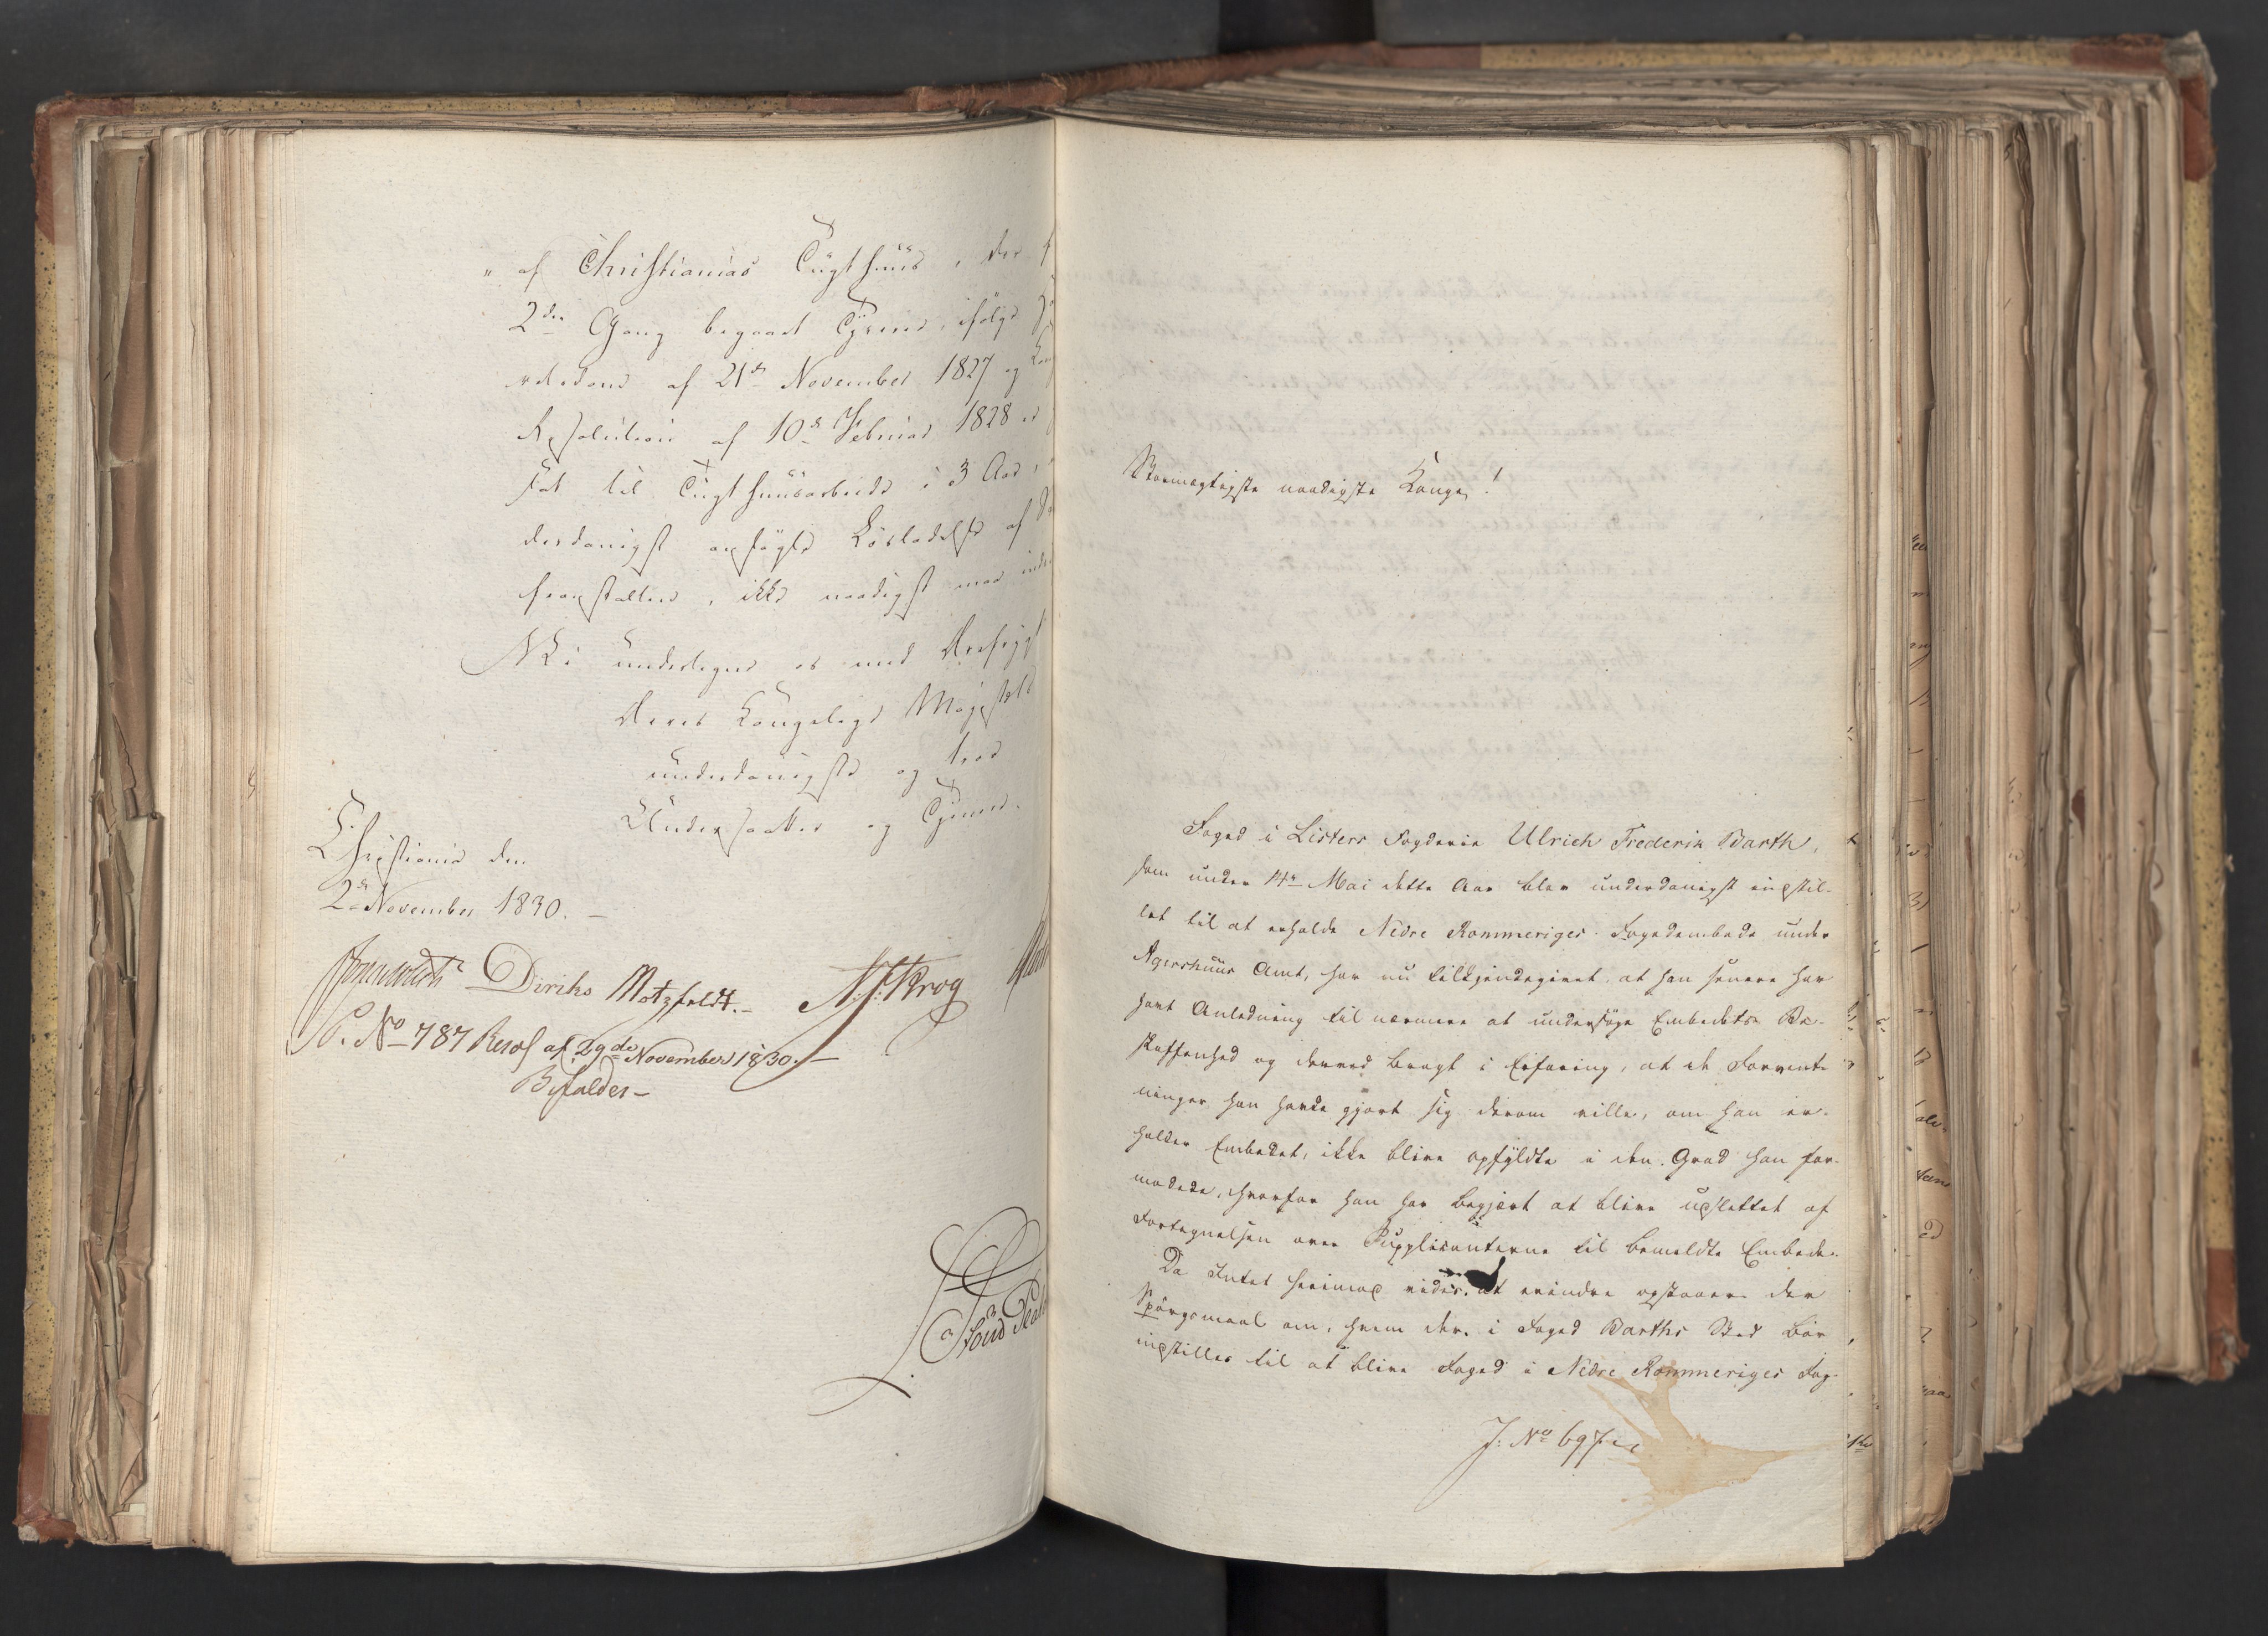 " af Christianias Tugthuus, der f
2den Gang begaaet Tyverie, ifølge
af 21de November 1827 og Kon
Resolution af 10de Februar 1828 er
sat til Tugthuusarbeide i 3 Aar,
derdanigst ansøgte Løsladelse af
Straf anstalten, ikke naadigst maa inde
Vi undertegne os med Ærefrygt
Deres Kongelige Majestæts
underdanigste og troe
Undersaatter og Tjenere.
Christiania den
2de November 1830.
Diriks Motzfeldt. Krog
P. No 787 Resol af 29de November 1830.
Bifaldes
Stormægtigste naadigste Konge!
Foged i Listers Fogderie Ulrich Frederik Barth,
som under 14de Mai dette Aar blev underdanigst indstil-
let til at erholde Nedre Rommeriges Fogedembede under
Agershuus Amt, har nu tilkjendegivet, at han senere har
havt Anledning til nærmere at undersøge Embedets Be-
skaffenhed og derved bragt i Erfaring, at de Forvent-
ninger han havde gjort sig derom ville, om han er-
holder Embedet, ikke blive opfyldte i den Grad han for-
modede, hvorfor han har begjært at blive udslettet af
Fortegnelsen over Supplicanterne til bemeldte Embede.
Da Intet herimod vides at erindre opstaaer der
Spørgsmaal om, hvem der i Foged Barths Sted bør
indstilles til at blive Foged i Nedre Rommeriges Fog-
J: No 697